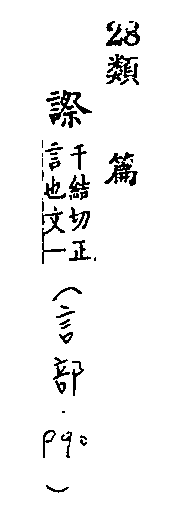 28類篇
詧 千結切正言也文一(言部.P90)